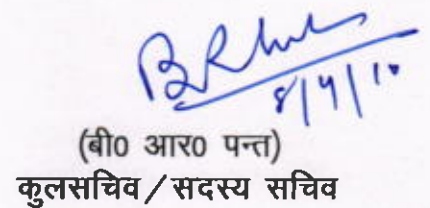 8/4/10
(बी० आर० पन्त)
कुलसचिव/सदस्य सचिव